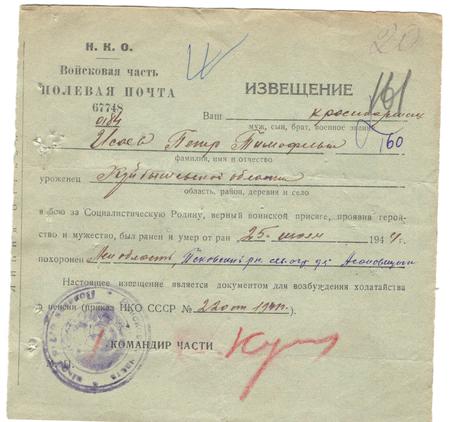 20
Н. К. О.
Войсковая часть
ПОЛЕВАЯ ПОЧТА
67748
0184
ИЗВЕЩЕНИЕ
161
Ваш красноармеец
муж, сын, брат, военное звание
160
Исаев Петр Тимофеевич
фамилия, имя и отчество
уроженец Куйбышевской области
область, район, деревня и село
в бою за Социалистическую Родину, верный воинской присяге, проявив геройство
и мужество, был ранен и умер от ран 25 июля 1944.
похоронен Лен область, Псковский рн
Настоящее извещение является документом для возбуждения ходатайства
о пенсии (приказ НКО СССР №
КОМАНДИР ЧАСТИ